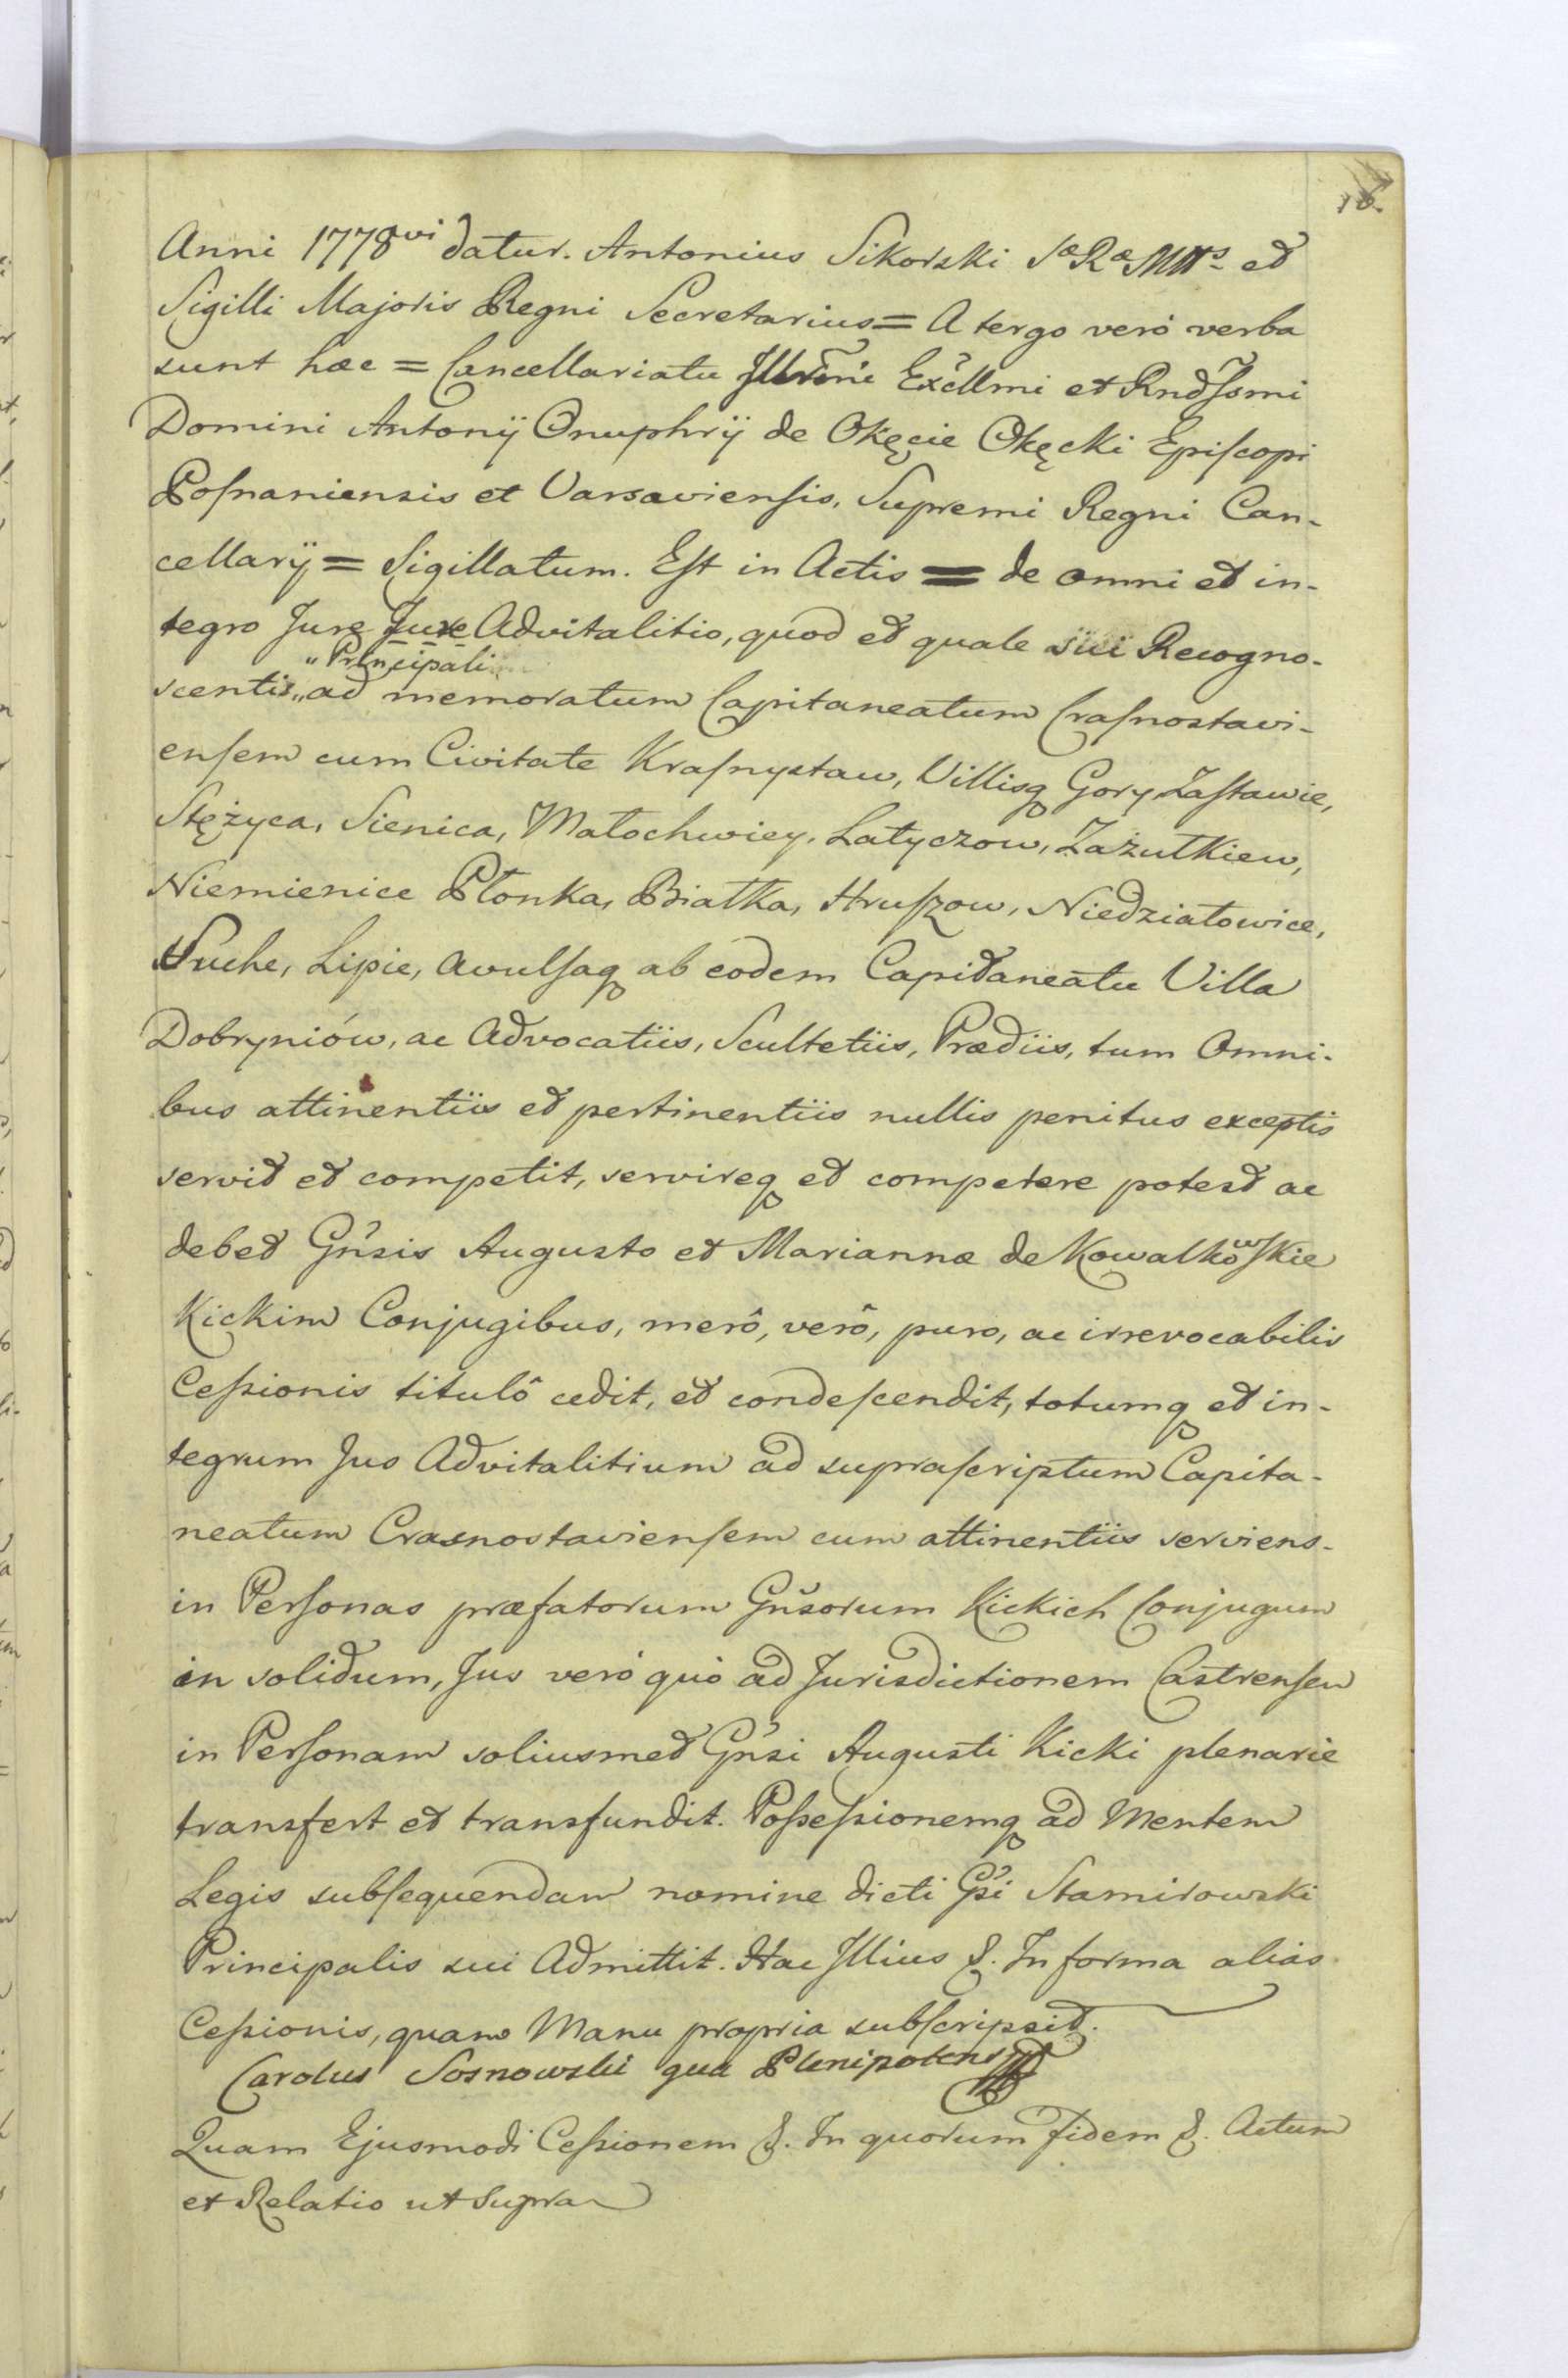 16.
Anni 1778vi datur. Antonius Sikorski SæRæMttis et
Sigilli Majoris Regni Secretarius = A tergo verò verba
sunt hæc = Cancellariatu Illrmi Excllmi et Rndssmi
Domini Antonij Onuphrij de Okęcie Okęcki Episcopi
Posnaniensis et Varsaviensis, Supremi Regni Can-
cellarij = Sigillatum. Est in Actis = de omni et in-
tegro Jure Advitalitio, quod et quale sui Recogno-
"Principali
scentis" ad memoratum Capitaneatum Crasnostavi-
ensem cum Civitate Krasnystaw, Villisq Gory Zastawie,
Stężyca, Sienica, Małochwiey, Latyczow, Zażułkiew,
Niemienice Płonka, Białka, Hruszow, Niedziałowice,
Suche, Lipie, avulsaq ab eodem Capitaneatu Villa
Dobryniów, ac Advocatiis, Scultetiis, Prædiis, tum Omni-
bus attinentiis et pertinentiis nullis penitus exceptis
servit et competit, servireq et competere potest ac
debet Gnsis Augusto et Mariannæ de Kowalkowskie
Kickim Conjugibus, merô, verô, puro, ac irrevocabilis
Cessionis titulô cedit, et condescendit, totumq et in-
tegrum Jus Advitalitium ad suprascriptum Capita-
neatum Crasnostaviensem cum attinentiis serviens-
in Personas præfatorum Gnsorum Kickich Conjugum
in solidum, Jus verò quò ad Jurisdictionem Castrensem
in Personam soliusmet Gnsi Augusti Kicki plenarie
transfert et transfundit. Possessionemq ad Mentem
Legis subsequendam nomine dicti Gsi Stamirowski
Principalis sui Admittit. Hac Illius &. In forma alias
Cessionis, quam Manu propria subscripsit.
Carolus Sosnowski qua Plenipotens
Quam Ejusmodi Cessionem &. In quorum fidem &. Actum
et Relatio ut supra